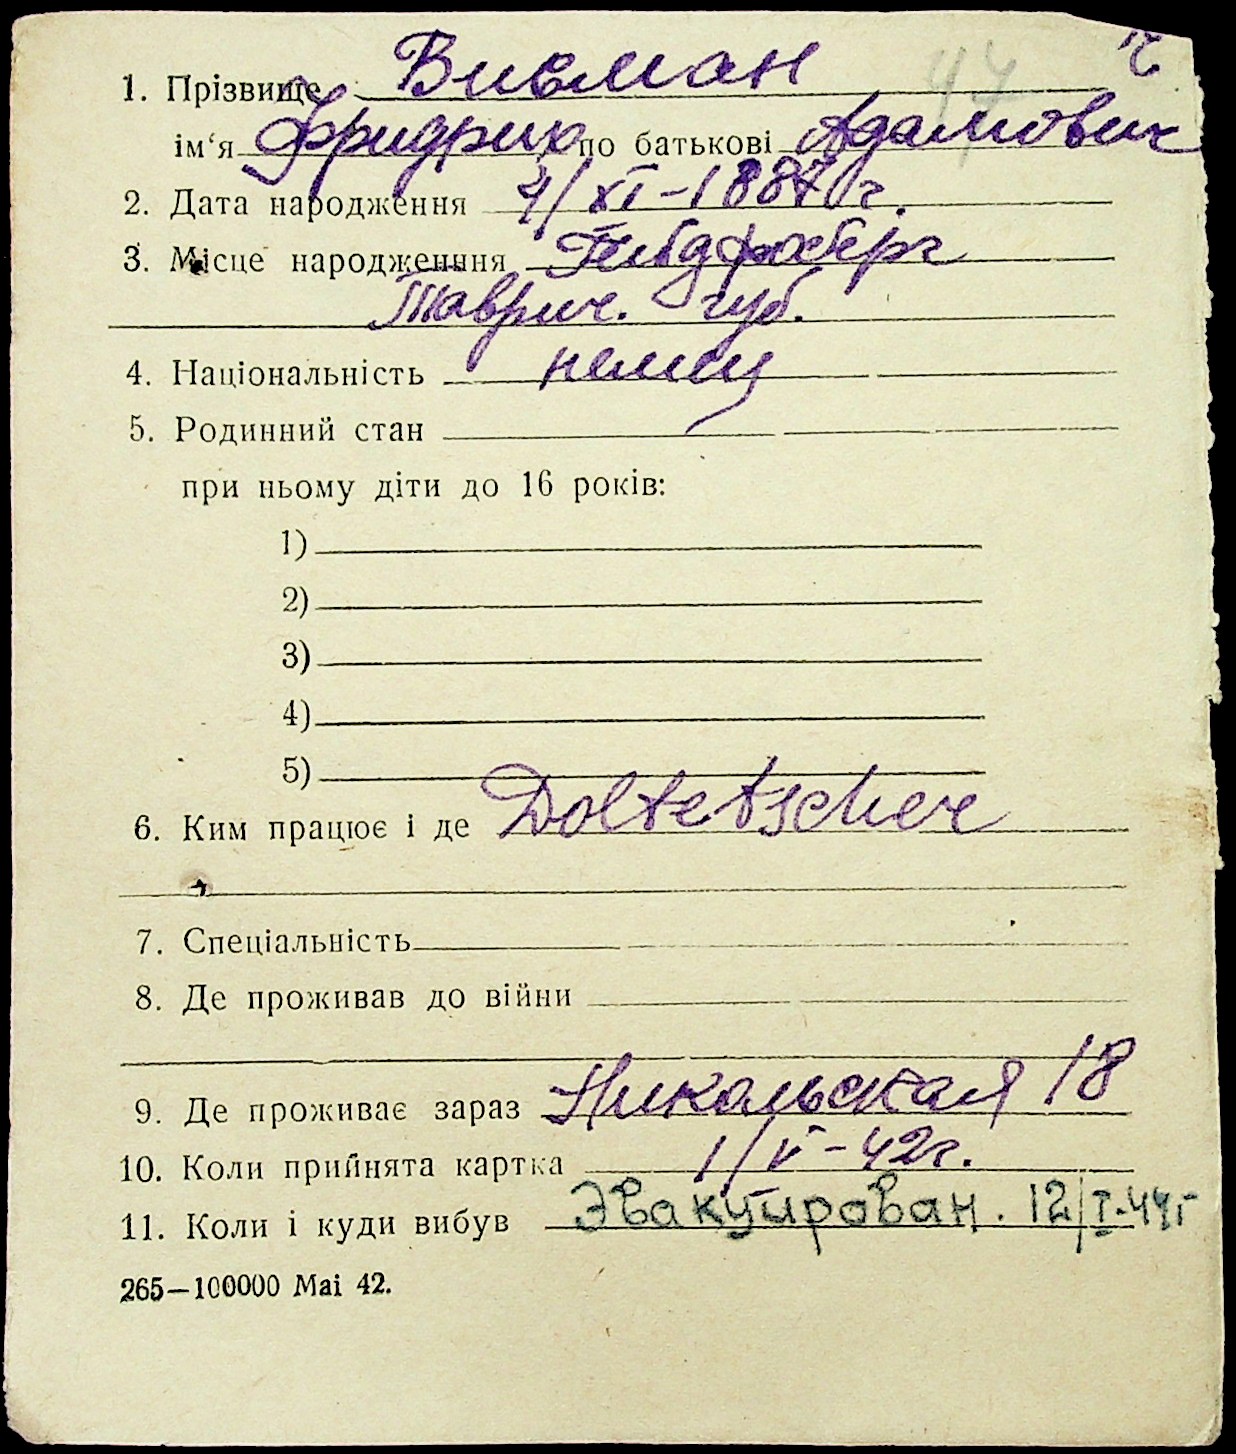 47
1. Прізвище Висман
ім‘я Фридрих по батькові Адамович
2. Дата народження 4/XI-1887 г.
3. Місце народженння
Таврич. губ.
4. Національність немец
5. Родинний стан
при ньому діти до 16 років:
1)
2)
3)
4)
5)
6. Ким працює і де Doltetscher
7. Спеціальність
8. Де проживав до війни
9. Де проживає зараз Никольская 18
10. Коли прийнята картка 1/V-42г.
11. Коли і куди вибув Эвакуирован. 12/I-44г
265—100000 Mai 42.